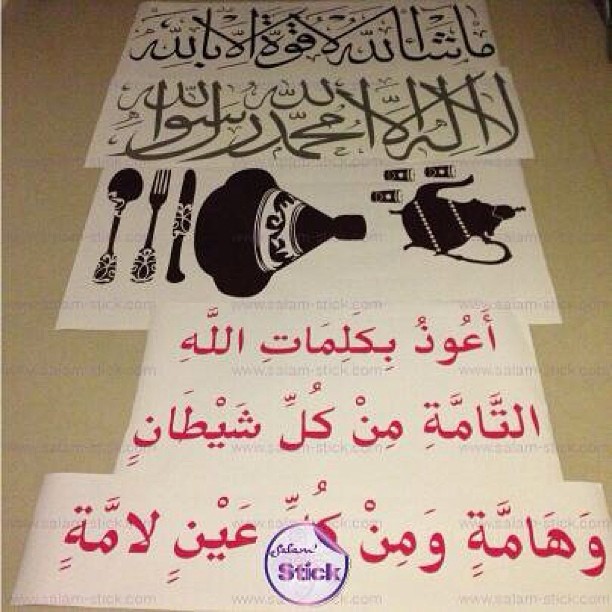 ما شاء الله لا قوة إلا بالله
لا إله إلا الله محمد رسول الله
أَعُوذُ بِكَلِمَاتِ اللَّهِ
التَّامَّةِ مِنْ كُلِّ شَيْطَانٍ
وَهَامَّةِ وَمِنْ كُلِّ عَيْنٍ لامَّةِ
Salam'
Stick
www.salam-stick.com